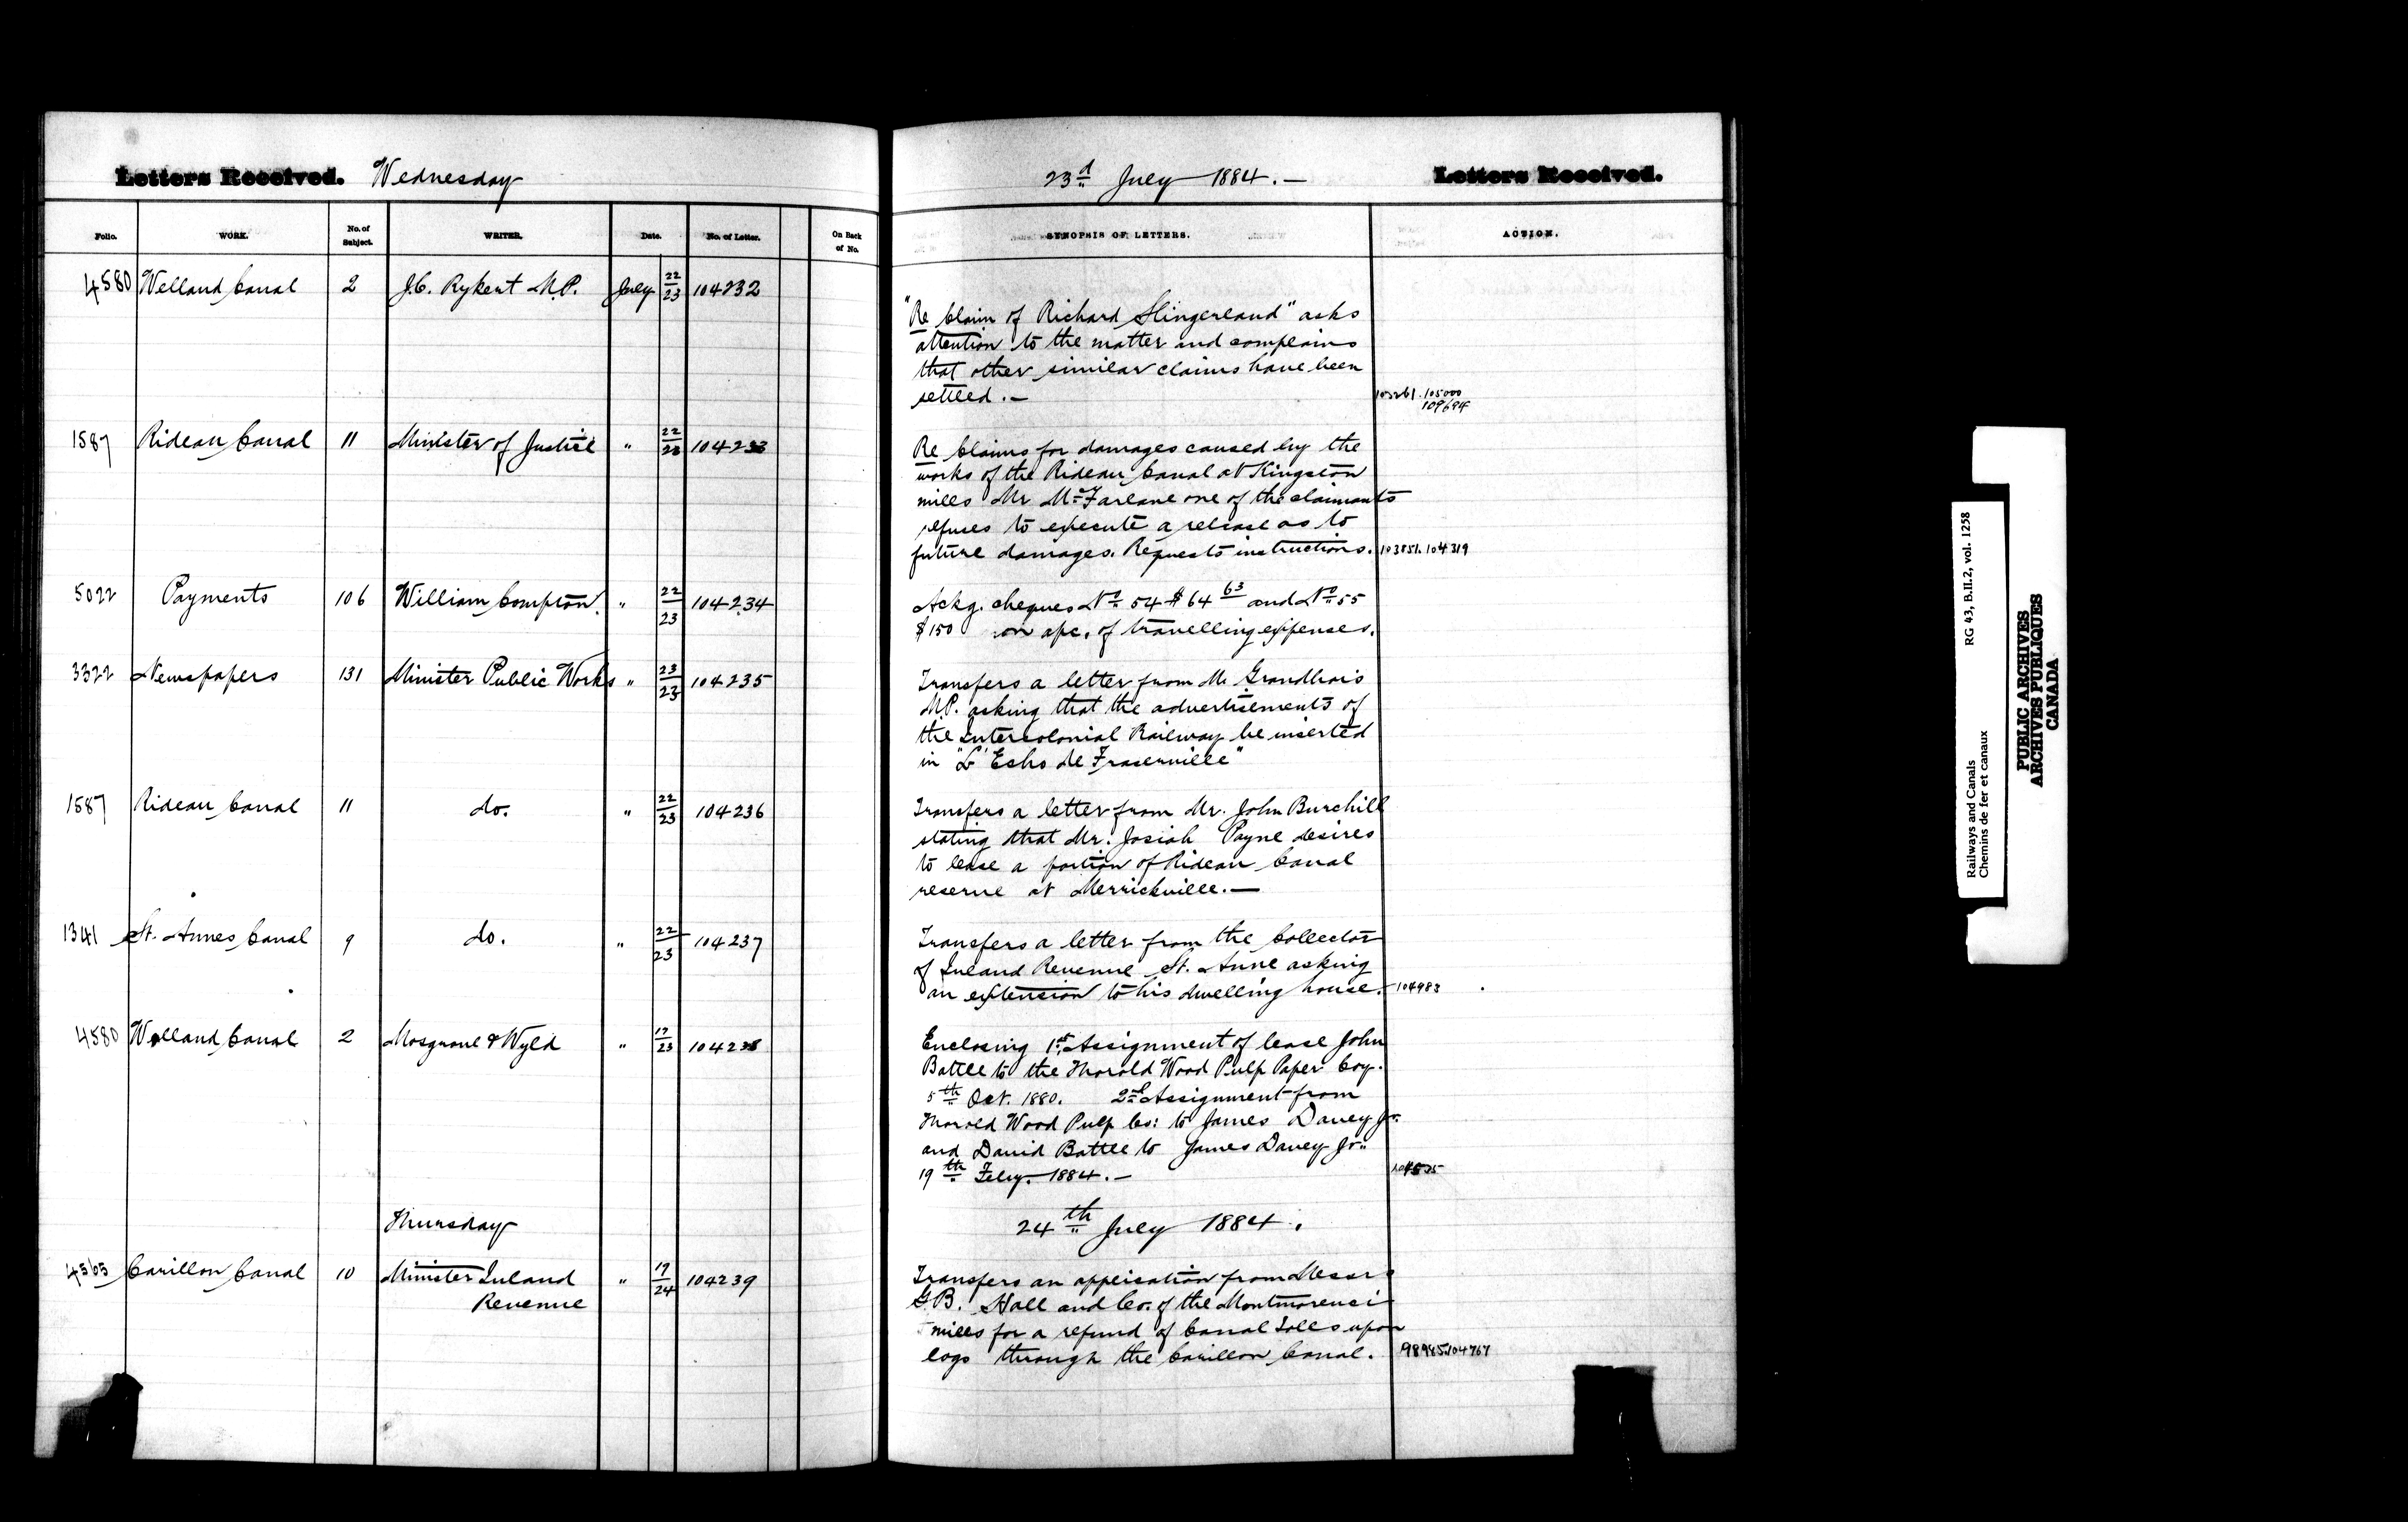 Letters Received. Wednesday 23d July 1884. — Letters Received.
Folio. WORK. No. of Subject. WRITER. Date. No. of Letter. On Back of No. SYNOPSIS OF LETTERS. ACTION.
4580 Welland Canal 2 J.C. Rykert M.P. July 22/23 104232
"Re Claim of Richard Slingerland" asks
attention to the matter and complains
that other similar claims have been
settled. —
105000
109694
1587 Rideau Canal 11 Minister of Justice " 22/23 104233
Re Claims for damages caused by the
works of the Rideau Canal at Kingston
mills Mr McFarlane one of the claimants
refuses to execute a release as to
future damages. Requests instructions. 103851. 104319
5022 Payments 106 William Compton. " 22/23 104234
Ackg. cheques No 54 $64 63 and No 55
$150 on apc. of travelling expenses.
3322 Newspapers 131 Minister Public Works " 23/23 104235
Transfers a letter from Mr Grandbois
M.P. asking that the advertisements of
the Intercolonial Railway be inserted
in "L' Echo de Fraserville"
1587 Rideau Canal 11 do. " 22/23 104236
Transfers a letter from Mr. John Burchill
stating that Mr. Josiah Payne desires
to lease a portion of Rideau Canal
reserve at Merrickville. —
1341 St. Annes Canal 9 do. " 22/23 104237
Transfers a letter from the Collector
of Inland Revenue St. Anne asking
an extension to his dwelling house. 104983
4580 Welland Canal 2 Mosgrove & Wyld " 17/23 104238
Enclosing 1st Assignment of lease John
Battle to the Thorold Wood Pulp Paper Coy.
5th Oct. 1880. 2nd Assignment from
Thorold Wood Pulp Co: to James Davey Jr.
and David Battle to James Davey Jr.
19th Feby. 1884. —
Thursday 24th July 1884.
4565 Carillon Canal 10 Minister Inland " 17/24 104239
Revenue
Transfers an application from Messrs
G.B. Hall and Co. of the Montmorenci
mills for a refund of Canal Tolls upon
logs through the Carillon Canal. 98985.104767
Railways and Canals RG 43, B.II.2, vol. 1258
Chemins de fer et canaux
PUBLIC ARCHIVES
ARCHIVES PUBLIQUES
CANADA